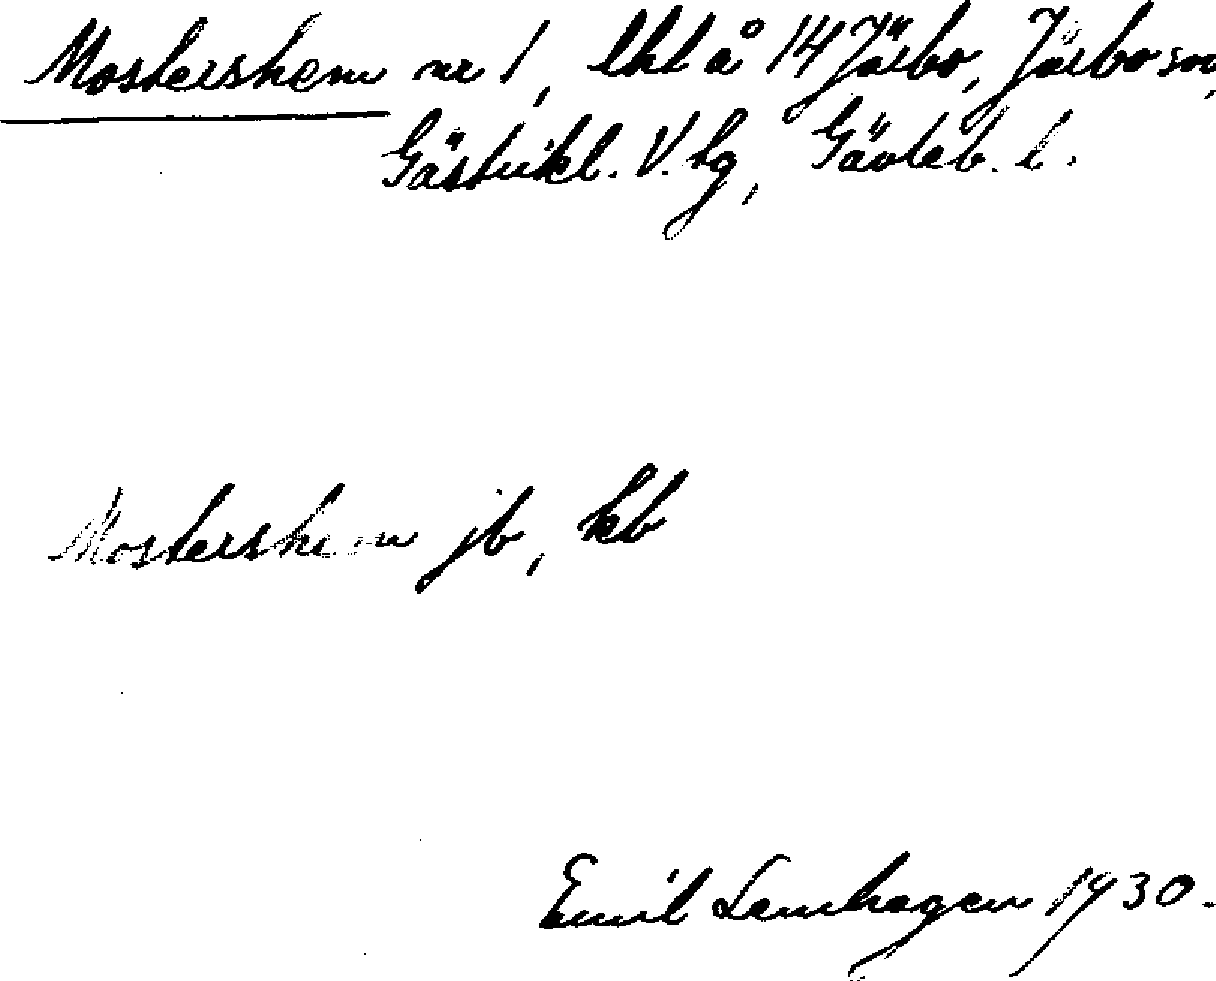 Mostershem nr 1, lht å 14 Järbo, Järbo sn,
Gästrikl. V. tg, Gävleb. l.
Mostershem jb, kb
Emil Lennhagen 1930.